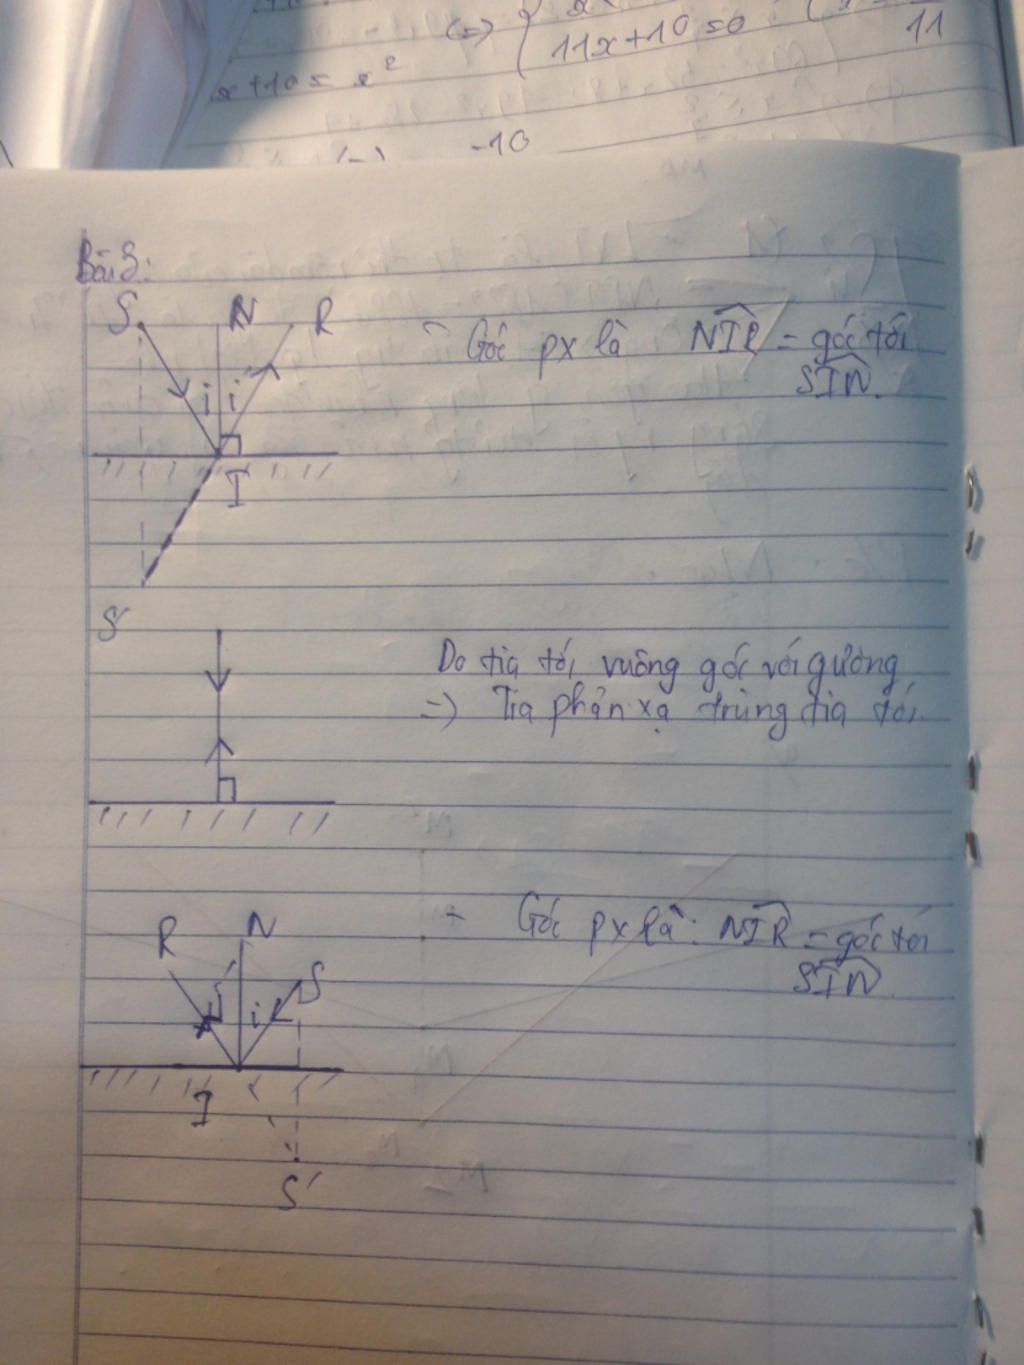 (=)
11x+10=0
11
x+10= x²
(=) -10
Bài 3:
S N R
i i'
I
S'
- Góc px là NIR = góc tới
SIN.
Do tia tới vuông góc với gương
=> Tia phản xạ trùng tia tới.
R N S
i' i
I
S'
- Góc px là: NIR = góc tới
SIN